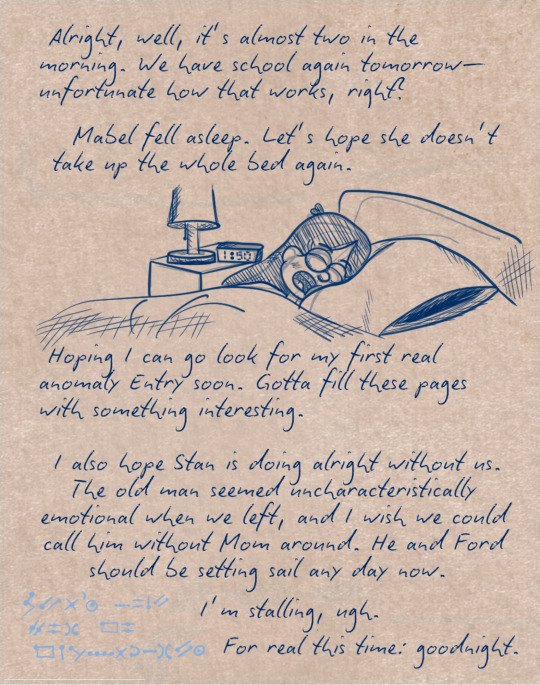 Alright, well, it's almost two in the
morning. We have school again tomorrow—
unfortunate how that works, right?
Mabel fell asleep. Let's hope she doesn't
take up the whole bed again.
1:50
Hoping I can go look for my first real
anomaly Entry soon. Gotta fill these pages
with something interesting.
I also hope Stan is doing alright without us.
The old man seemed uncharacteristically
emotional when we left, and I wish we could
call him without Mom around. He and Ford
should be setting sail any day now.
I'm stalling, ugh.
For real this time: goodnight.